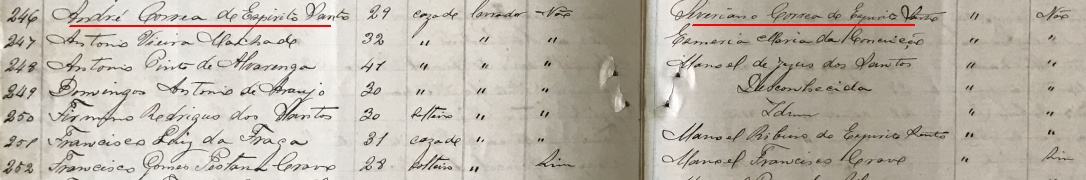 246 André Correa de Espirito Santo 29 cazado lavrador Não Severiano Correa de Espirito Santo " Não
247 Antonio Vieira Machado 32 " " " Esmeria Maria da Conceição " "
248 Antonio Pinto de Alvarenga 41 " " " Manoel de Jezus dos Santos " "
249 Domingos Antonio de Araujo 30 " " " Desconhecida " "
250 Firmino Rodrigues dos Santos 30 solteiro " " Idem " "
251 Francisco Luiz da Fraga 31 cazado " " Manoel Ribeiro do Espirito Santo " "
252 Francisco Gomes Pestana Crave 28 solteiro " Sim Manoel Francisco Crave " Sim